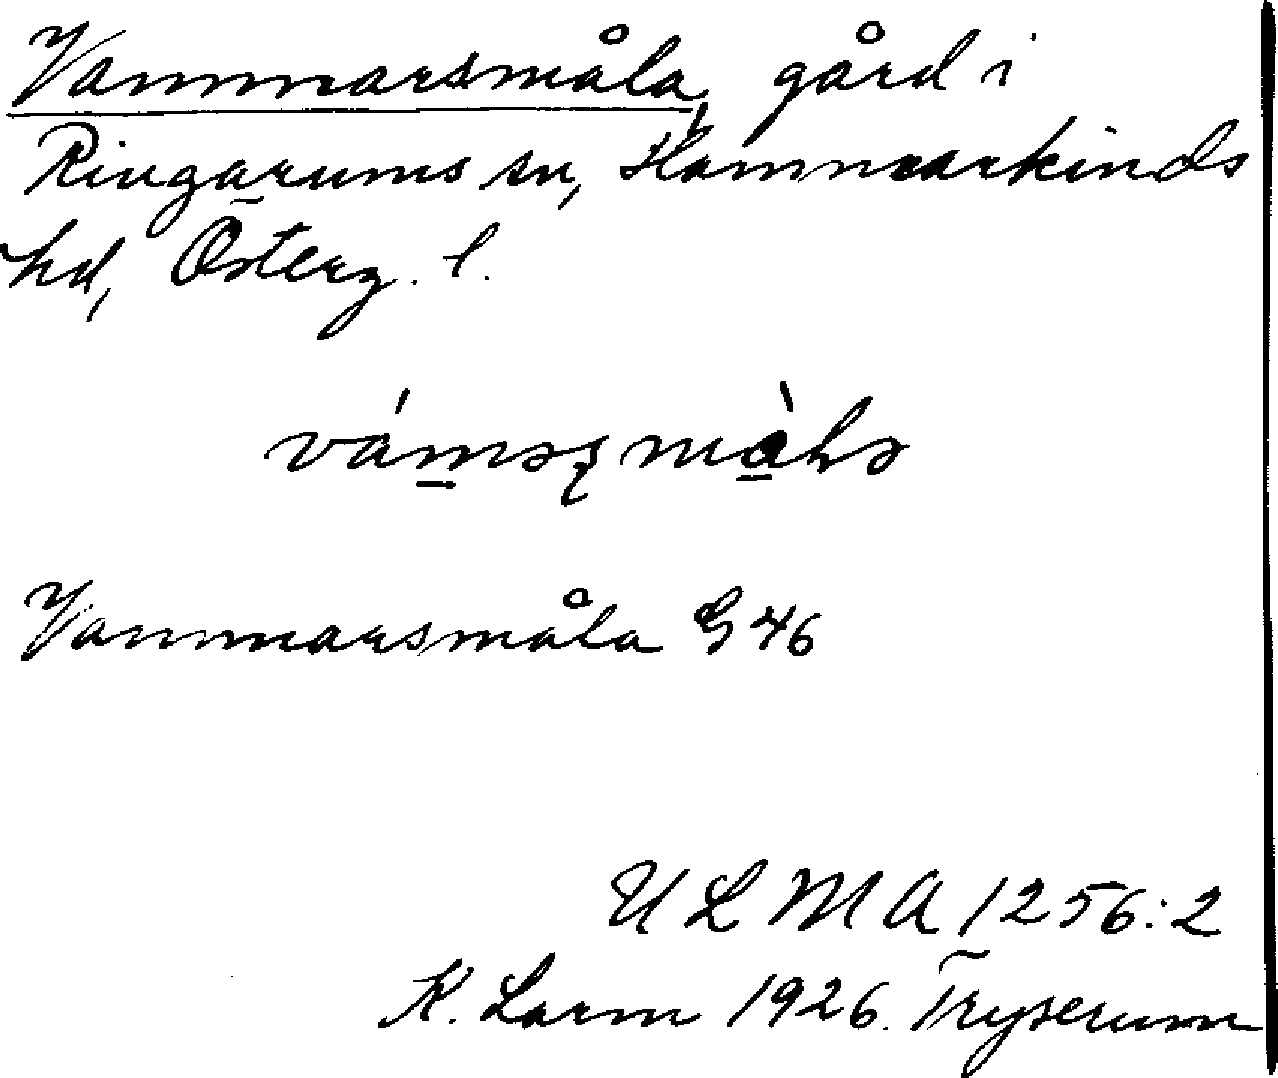 Vammarsmåla, gård i
Ringarums sn, Hammarkinds
hd, Österg. l.
Vammarsmåla G 46
ULMA 1256:2
K. Larm 1926. Tryserum